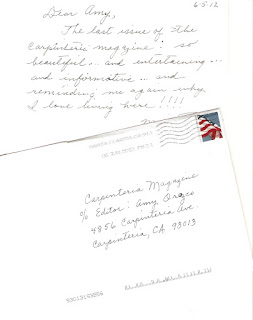 6-5-12
Dear Amy,
The last issue of the
Carpinteria magazine! so
beautiful... and entertaining...
and informative... and
reminding me again why
I love living here!!!!
Carpenteria Magazene
c/o Editor: Amy Orozco
4856 Carpinteria Ave.
Carpinteria, CA 93013